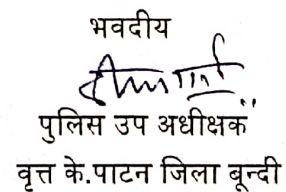 भवदीय
पुलिस उप अधीक्षक
वृत्त के.पाटन जिला बून्दी